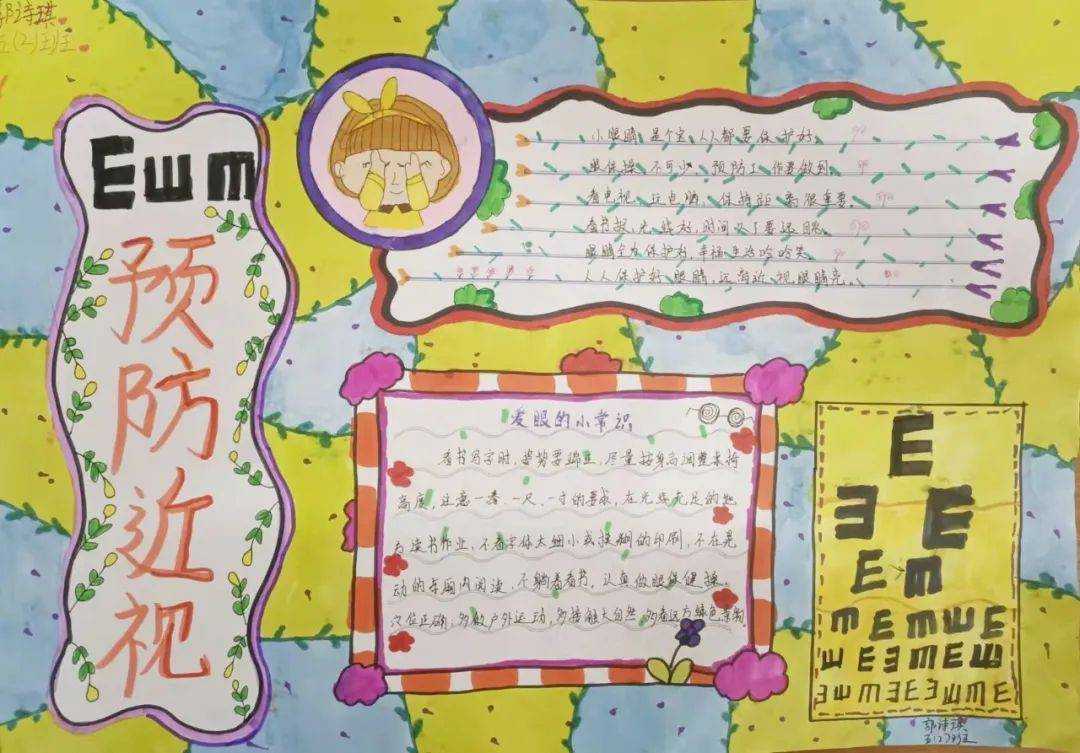 郭诗琪
五(2)班
Eшm
预防近视
小眼睛是个宝,人人都要保护好。
眼保操,不可少,预防工作要做到。
看电视,玩电脑,保持距离很重要。
看书报,光线好,时间长了要远眺。
眼睛全力保护好,幸福生活哈哈笑。
人人保护好眼睛,远离近视眼睛亮。
爱眼的小常识
看书写字时,姿势要端正,尽量按身高调整桌椅
高度,注意一拳、一尺、一寸的要求,在光线充足的地
方读书作业,不看字体太细小或模糊的印刷,不在晃
动的车厢内阅读,不躺着看书。认真做眼保健操,
穴位正确,多做户外运动,多接触大自然,多看远方绿色景物
E
ƎE
Em
mEmшE
шEƎmEш
ƎшmƎEƎшmE
郭诗琪
五(2)班